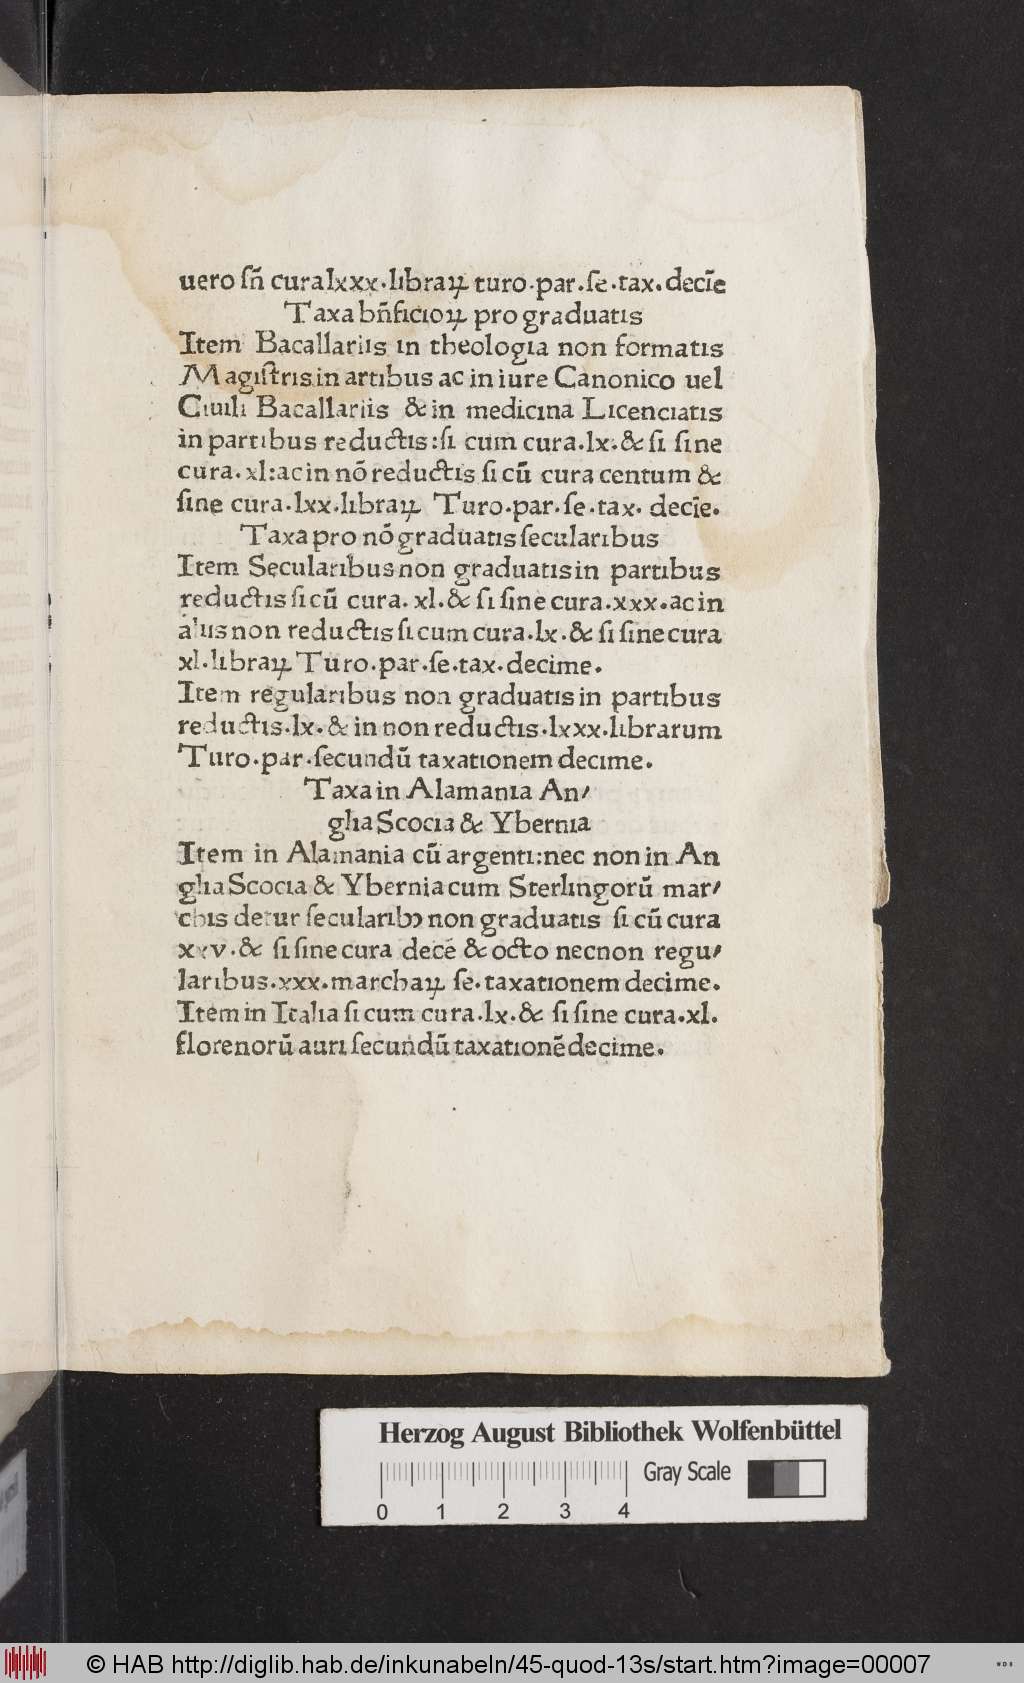 uero ſñ cura lxxx.libraꝝ turo.par.ſe.tax.decĩe
Taxa bñficioꝝ pro graduatis
Item Bacallariis in theologia non formatis
Magiſtris in artibus ac in iure Canonico uel
Ciuili Bacallariis & in medicina Licenciatis
in partibus reductis:ſi cum cura.lx.& ſi ſine
cura.xl:ac in nõ reductis ſi cũ cura centum &
ſine cura.lxx.libraꝝ Turo.par.ſe.tax. decĩe.
Taxa pro nõ graduatis ſecularibus
Item Secularibus non graduatis in partibus
reductis ſi cũ cura.xl.& ſi ſine cura.xxx.ac in
aliis non reductis ſi cum cura.lx.& ſi ſine cura
xl.libraꝝ Turo.par.ſe.tax.decime.
Item regularibus non graduatis in partibus
reductis.lx.& in non reductis.lxxx.librarum
Turo.par.ſecundũ taxationem decime.
Taxa in Alamania An⸗
glia Scocia & Ybernia
Item in Alamania cũ argenti:nec non in An
glia Scocia & Ybernia cum Sterlingorũ mar⸗
chis detur ſecularibꝰ non graduatis ſi cũ cura
xxv.& ſi ſine cura decẽ & octo necnon regu⸗
laribus.xxx.marchaꝝ ſe.taxationem decime.
Item in Italia ſi cum cura.lx.& ſi ſine cura.xl.
florenorũ auri ſecundũ taxationẽ decime.
Herzog August Bibliothek Wolfenbüttel
Gray Scale
0 1 2 3 4
© HAB http://diglib.hab.de/inkunabeln/45-quod-13s/start.htm?image=00007